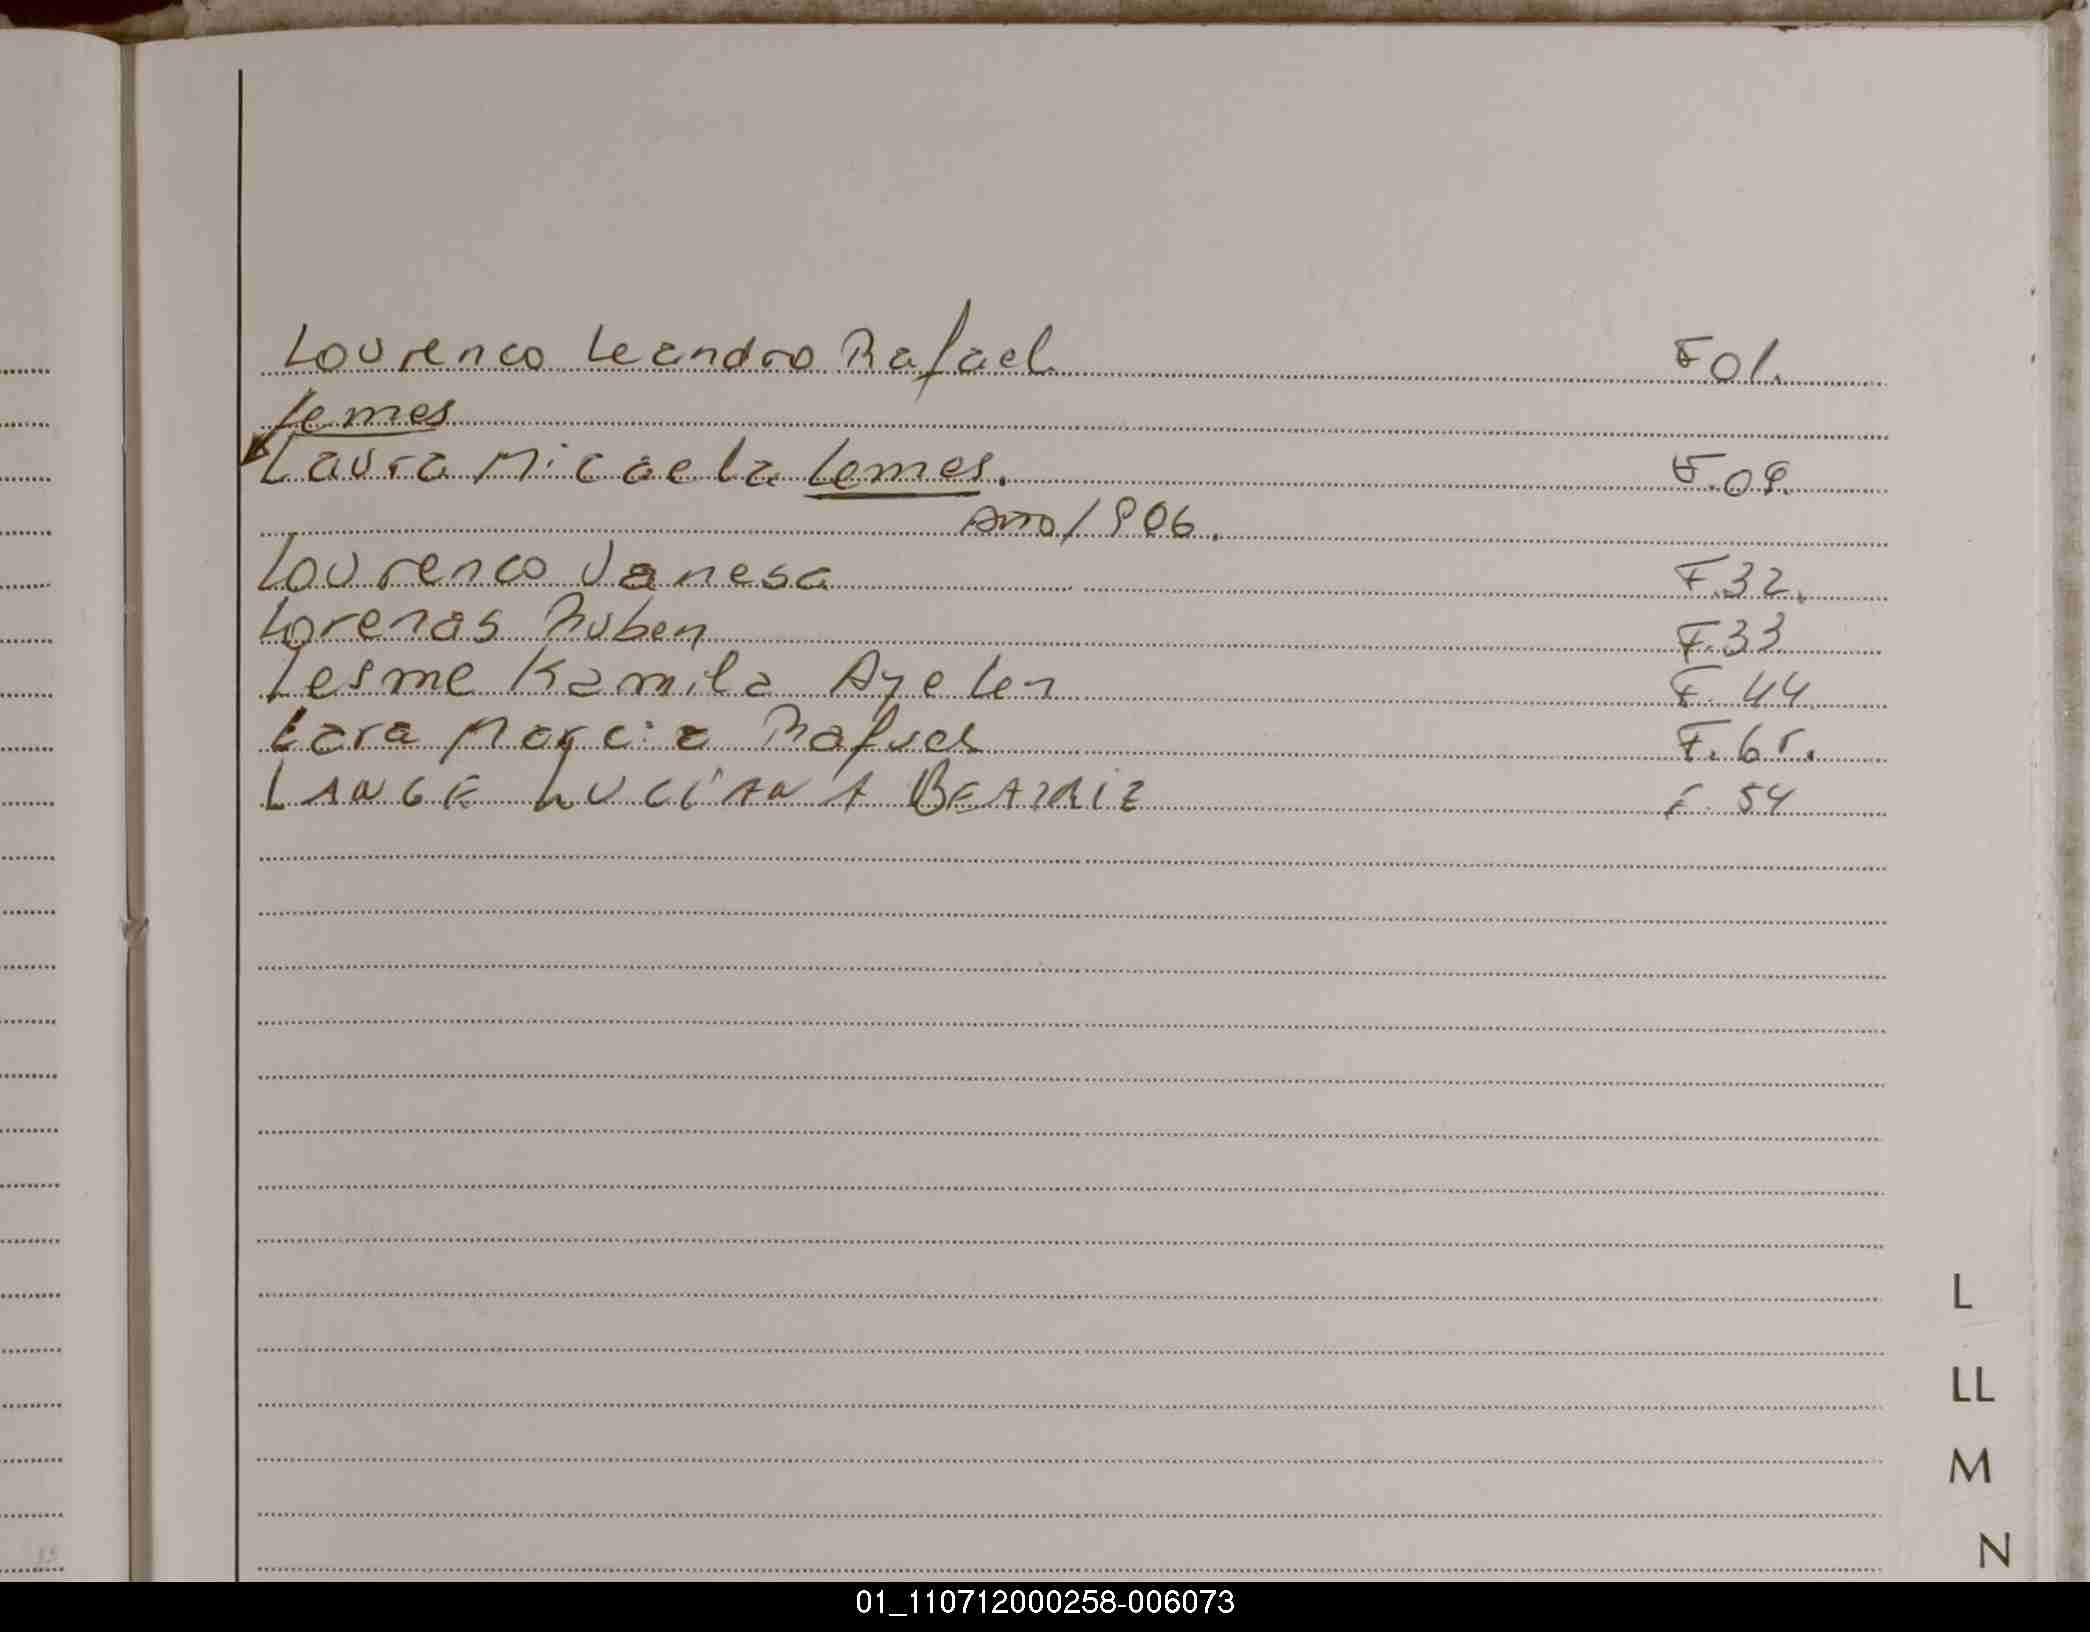 Lourenco Leandro Rafael F 01.
Lemes
Laura Micaela Lemes. F.09.
Ano/906.
Lourenco Vanesa F.32.
Lorenas Ruben F.33
Lesme Kamila Ayelen F. 44
Lara Marcia Rafael F. 65.
LANGE LUCIANA BEATRIZ F. 54
L
LL
M
N
01_110712000258-006073